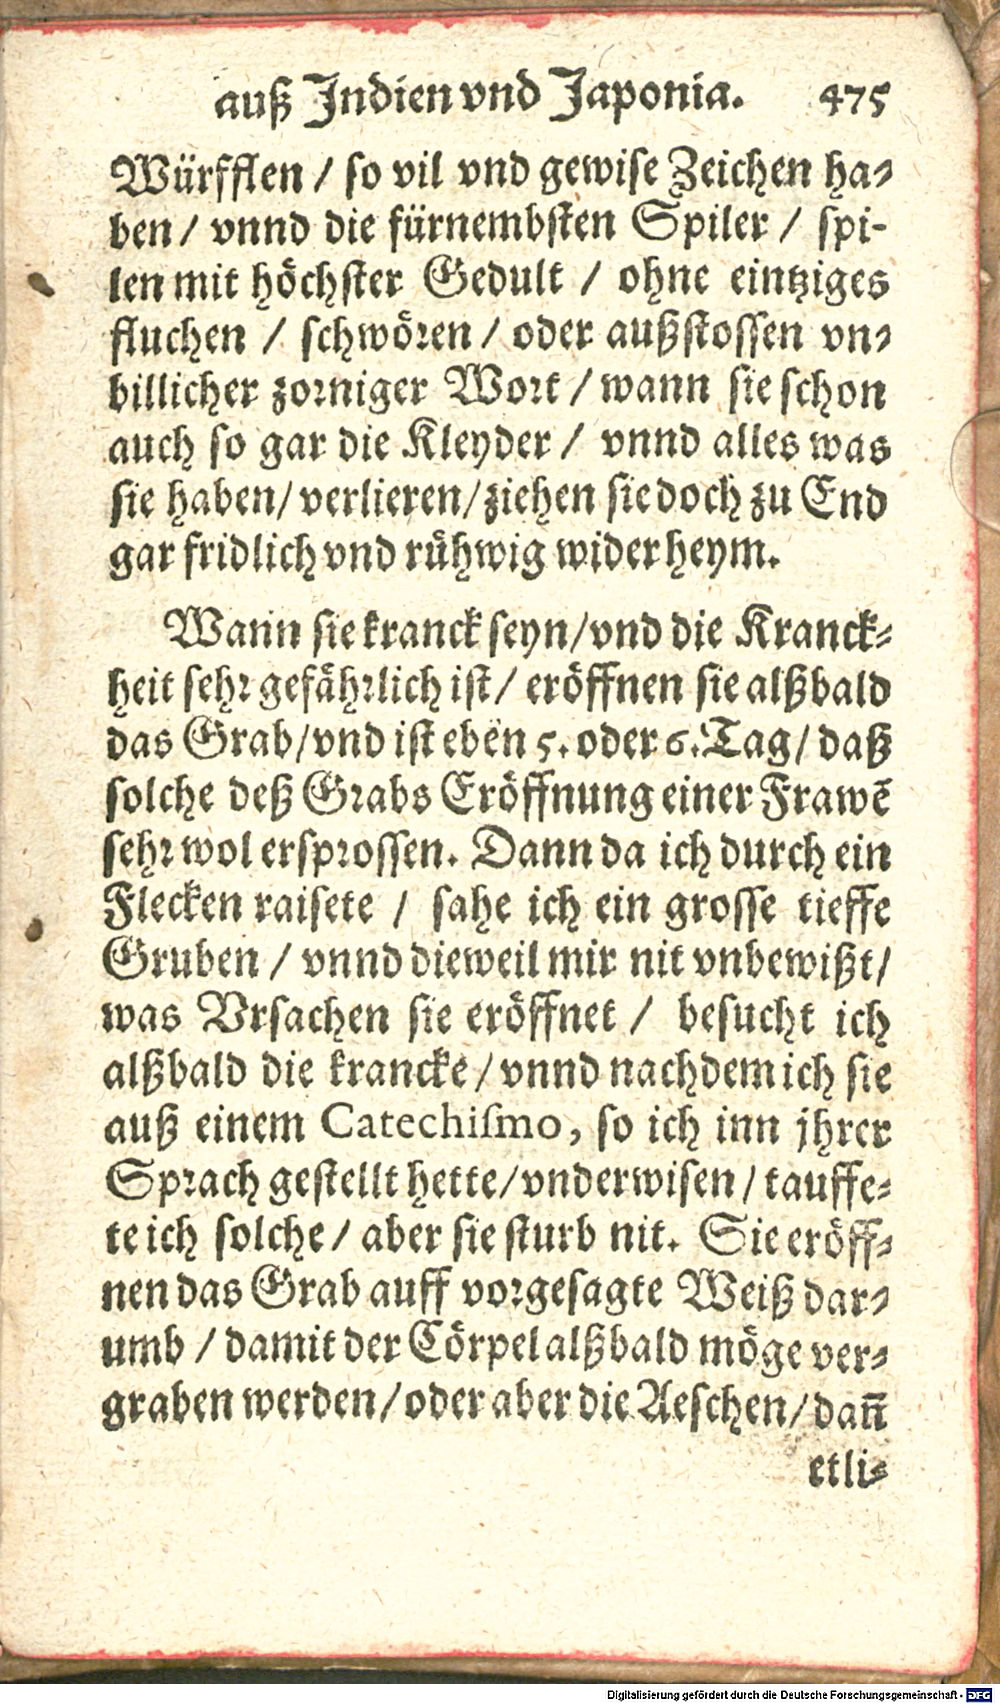 auß Jndien vnd Japonia. 475
Würfflen / so vil vnd gewise Zeichen ha-
ben / vnnd die fürnembsten Spiler / spi-
len mit höchster Gedult / ohne eintziges
fluchen / schwören / oder außstossen vn-
billicher zorniger Wort / wann sie schon
auch so gar die Kleyder / vnnd alles was
sie haben / verlieren / ziehen sie doch zu End
gar fridlich vnd rühwig wider heym.
Wann sie kranck seyn / vnd die Kranck-
heit sehr gefährlich ist / eröffnen sie alßbald
das Grab / vnd ist eben 5. oder 6. Tag / daß
solche deß Grabs Eröffnung einer Frawẽ
sehr wol ersprossen. Dann da ich durch ein
Flecken raisete / sahe ich ein grosse tieffe
Gruben / vnnd dieweil mir nit vnbewißt /
was Vrsachen sie eröffnet / besucht ich
alßbald die krancke / vnnd nachdem ich sie
auß einem Catechiſmo, so ich inn jhrer
Sprach gestellt hette / vnderwisen / tauffe-
te ich solche / aber sie sturb nit. Sie eröff-
nen das Grab auff vorgesagte Weiß dar-
umb / damit der Cörpel alßbald möge ver-
graben werden / oder aber die Aeschen / dañ
etli-
Digitalisierung gefördert durch die Deutsche Forschungsgemeinschaft - DFG